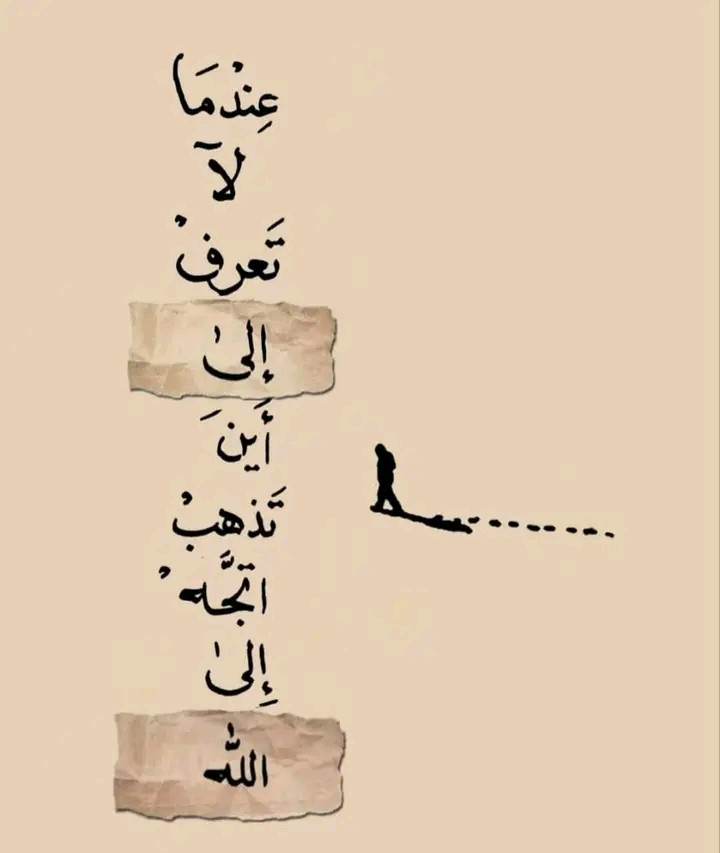 عِنْدَمَا
لَآ
تَعرفْ
إلىٰ
أَينَ
تَذهبْ
اتجَّهْ
إِلىٰ
اللّٰه